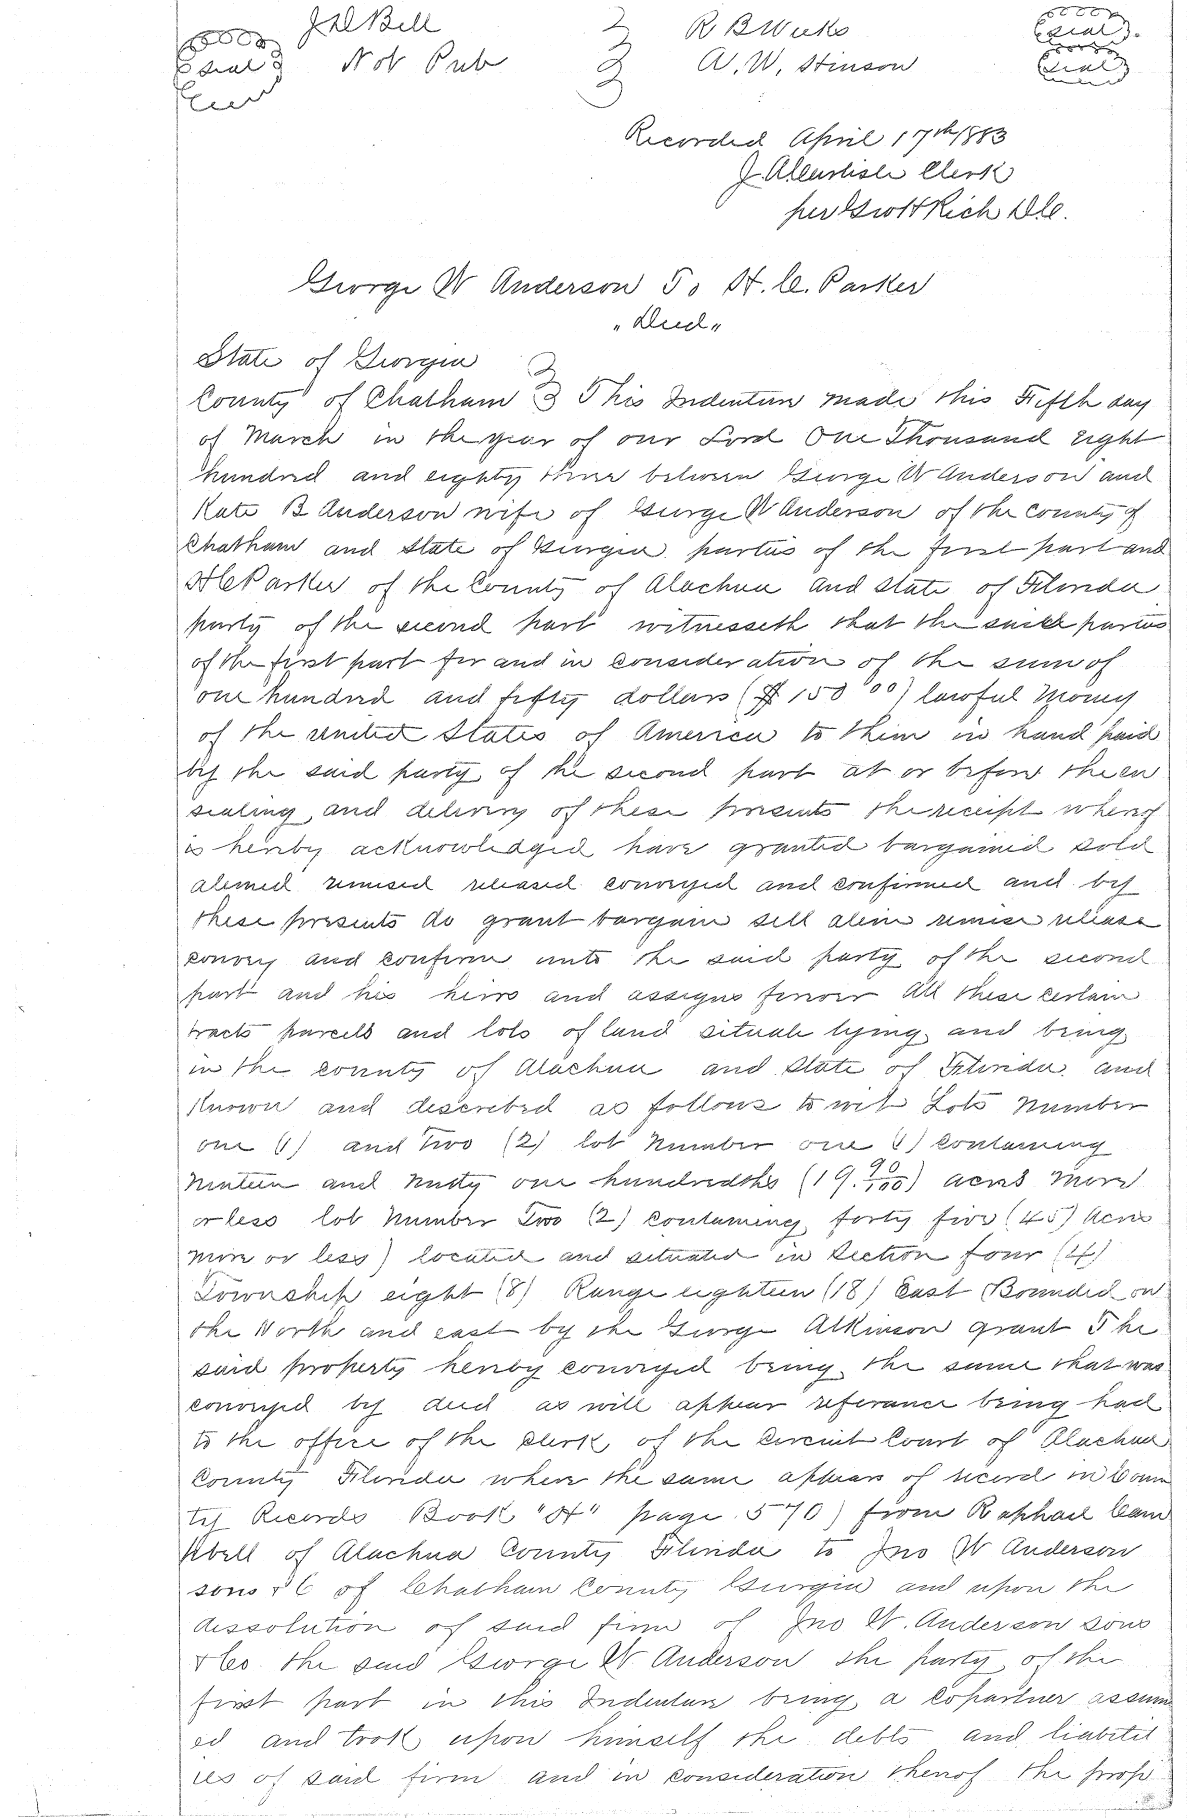 J D Bell R B Weeks (seal).
(seal) Not Pub A. W. Stinson (seal)
Recorded April 17th 1883
J. A. Carlisle Clerk
per Geo H Rich D.C.
George W Anderson To H. C. Parker
"Deed"
State of Georgia
County of Chatham } This Indenture made this Fifth day
of March in the year of our Lord One Thousand eight
hundred and eighty three between George W Anderson and
Kate B Anderson wife of George W Anderson of the county of
Chatham and State of Georgia parties of the first part and
H C Parker of the County of Alachua and State of Florida
party of the second part witnesseth that the said parties
of the first part for and in consideration of the sum of
one hundred and fifty dollars ($150 00) lawful money
of the united States of America to them in hand paid
by the said party of the second part at or before the en
sealing and delivery of these presents the receipt whereof
is hereby acknowledged have granted bargained sold
aliened remised released conveyed and confirmed and by
these presents do grant bargain sell alien remise release
convey and confirm unto the said party of the second
part and his heirs and assigns forever All these certain
tracts parcels and lots of land situate lying and being
in the county of Alachua and State of Florida and
Known and described as follows to wit Lots Number
one (1) and Two (2) lot Number one (1) containing
Nineteen and Ninety one hundredths (19.90/100) acres more
or less lot Number Two (2) containing forty five (45) Acres
more or less) located and situated in Section four (4)
Township eight (8) Range eighteen (18) East Bounded on
the North and east by the George Atkinson grant The
said property hereby conveyed being the same that was
conveyed by deed as will appear referance being had
to the office of the clerk of the Circuit Court of Alachua
County Florida where the same appears of record in Coun
ty Records Book "H" page 570) from Raphael Cam
pbell of Alachua County Florida to Jno W Anderson
sons & C of Chatham County Georgia and upon the
dissolution of said firm of Jno W. Anderson sons
& Co. the said George W. Anderson the party of the
first part in this Indenture being a copartner assum
ed and took upon himself the debts and liabiliti
ies of said firm and in consideration thereof the prop